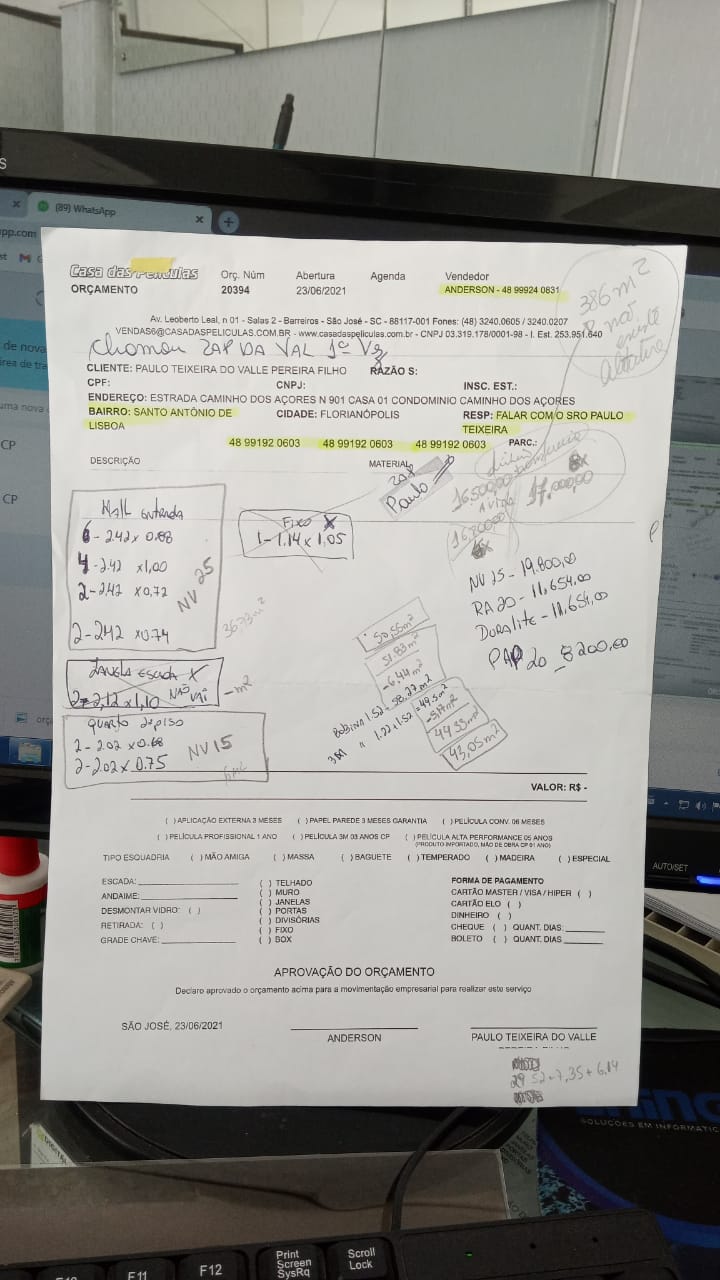 (89) WhatsApp
pp.com
Casa das Películas
ORÇAMENTO
Orç. Núm
20394
Abertura
23/06/2021
Agenda
Vendedor
ANDERSON - 48 99924 0831
386 m²
não
existe
Av. Leoberto Leal, n 01 - Salas 2 - Barreiros - São José - SC - 88117-001 Fones: (48) 3240.0605 / 3240.0207
VENDAS6@CASADASPELICULAS.COM.BR - www.casadaspeliculas.com.br - CNPJ 03.319.178/0001-98 - I. Est. 253.951.640
Chamou ZAP DA VAL 1ª Vz
CLIENTE: PAULO TEIXEIRA DO VALLE PEREIRA FILHO RAZÃO S:
CPF: CNPJ: INSC. EST.:
ENDEREÇO: ESTRADA CAMINHO DOS AÇORES N 901 CASA 01 CONDOMINIO CAMINHO DOS AÇORES
BAIRRO: SANTO ANTÔNIO DE LISBOA
CIDADE: FLORIANÓPOLIS
RESP: FALAR COM O SRO PAULO TEIXEIRA
48 99192 0603 48 99192 0603 48 99192 0603 PARC.:
DESCRIÇÃO MATERIAL
ZAP
Paulo
16.500,00
17.000,00
8x
Avista
16.200,00
6x
Hall entrada
6 - 2.42 x 0.88
4 - 2.42 x 1,00
2 - 2.42 x 0,72
2 - 2.42 x 0.74
NV 25
Fixo X
1 - 1.14 x 1,05
NV 25 - 19.800,00
RA 20 - 11.654,00
DURALITE - 11.654,00
PAP 20 - 8200,00
36.73 m²
JANELA ESCADA X
2 - 2,12 x 1,10 NÃO VAI
- m²
QUARTO 2º PISO
2 - 2.02 x 0.68
2 - 2.02 x 0.75
NV 15
50,55 m²
51.83 m²
- 6,44 m²
BOBINA 1.52 = 58.27 m²
3M " 1.22 x 1.52 = 49.5 m²
- 5,17 m²
44 33 m²
43,05 m²
VALOR: R$ -
( ) APLICAÇÃO EXTERNA 3 MESES ( ) PAPEL PAREDE 3 MESES GARANTIA ( ) PELÍCULA CONV. 06 MESES
( ) PELÍCULA PROFISSIONAL 1 ANO ( ) PELÍCULA 3M 03 ANOS CP ( ) PELÍCULA ALTA PERFORMANCE 05 ANOS
(PRODUTO IMPORTADO, MÃO DE OBRA CP 01 ANO)
TIPO ESQUADRIA ( ) MÃO AMIGA ( ) MASSA ( ) BAGUETE ( ) TEMPERADO ( ) MADEIRA ( ) ESPECIAL
ESCADA:
ANDAIME:
DESMONTAR VIDRO: ( )
RETIRADA: ( )
GRADE CHAVE:
( ) TELHADO
( ) MURO
( ) JANELAS
( ) PORTAS
( ) DIVISÓRIAS
( ) FIXO
( ) BOX
FORMA DE PAGAMENTO
CARTÃO MASTER / VISA / HIPER ( )
CARTÃO ELO ( )
DINHEIRO ( )
CHEQUE ( ) QUANT. DIAS:
BOLETO ( ) QUANT. DIAS
APROVAÇÃO DO ORÇAMENTO
Declaro aprovado o orçamento acima para a movimentação empresarial para realizar este serviço
SÃO JOSÉ, 23/06/2021
ANDERSON
PAULO TEIXEIRA DO VALLE
29 52 + 7,35 + 6,14
AUTO/SET
SOLUÇÕES EM INFORMATIC
F11
F12
Print
Screen
SysRq
Scroll
Lock